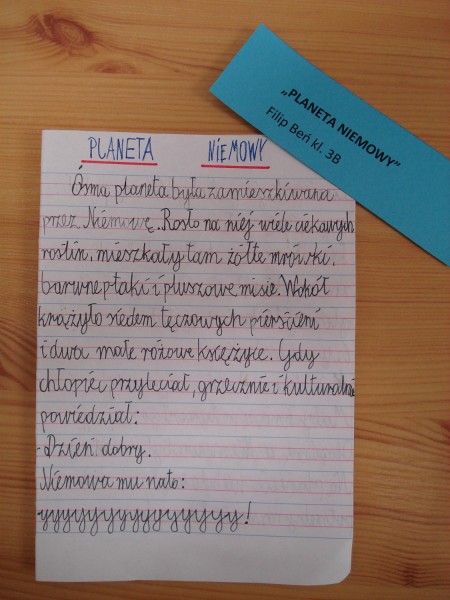 „PLANETA NIEMOWY”
Filip Beń kl. 3B
PLANETA NIEMOWY
Ósma planeta była zamieszkiwana
przez Niemowę. Rosło na niej wiele ciekawych
roślin, mieszkały tam żółte mrówki,
barwne ptaki i pluszowe misie. Wokół
krążyło siedem tęczowych pierścieni
i dwa małe różowe księżyce. Gdy
chłopiec przyleciał, grzecznie i kulturalnie
powiedział:
- Dzień dobry.
Niemowa mu nato:
yyyyyyyyyyyyyyy!